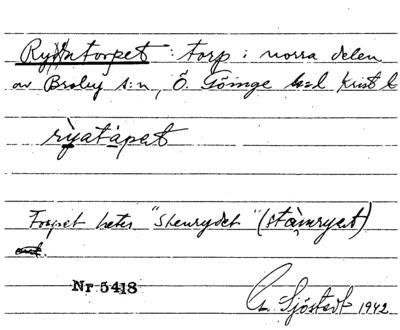 Ryttatorpet: torp i norra delen
av Broby s:n, Ö. Göinge hd Krist l
ry̱atạ̀pet
Torpet heter "Stenrydet" (stạ̀inryet)
Nr 5418
G. Sjöstedt 1942